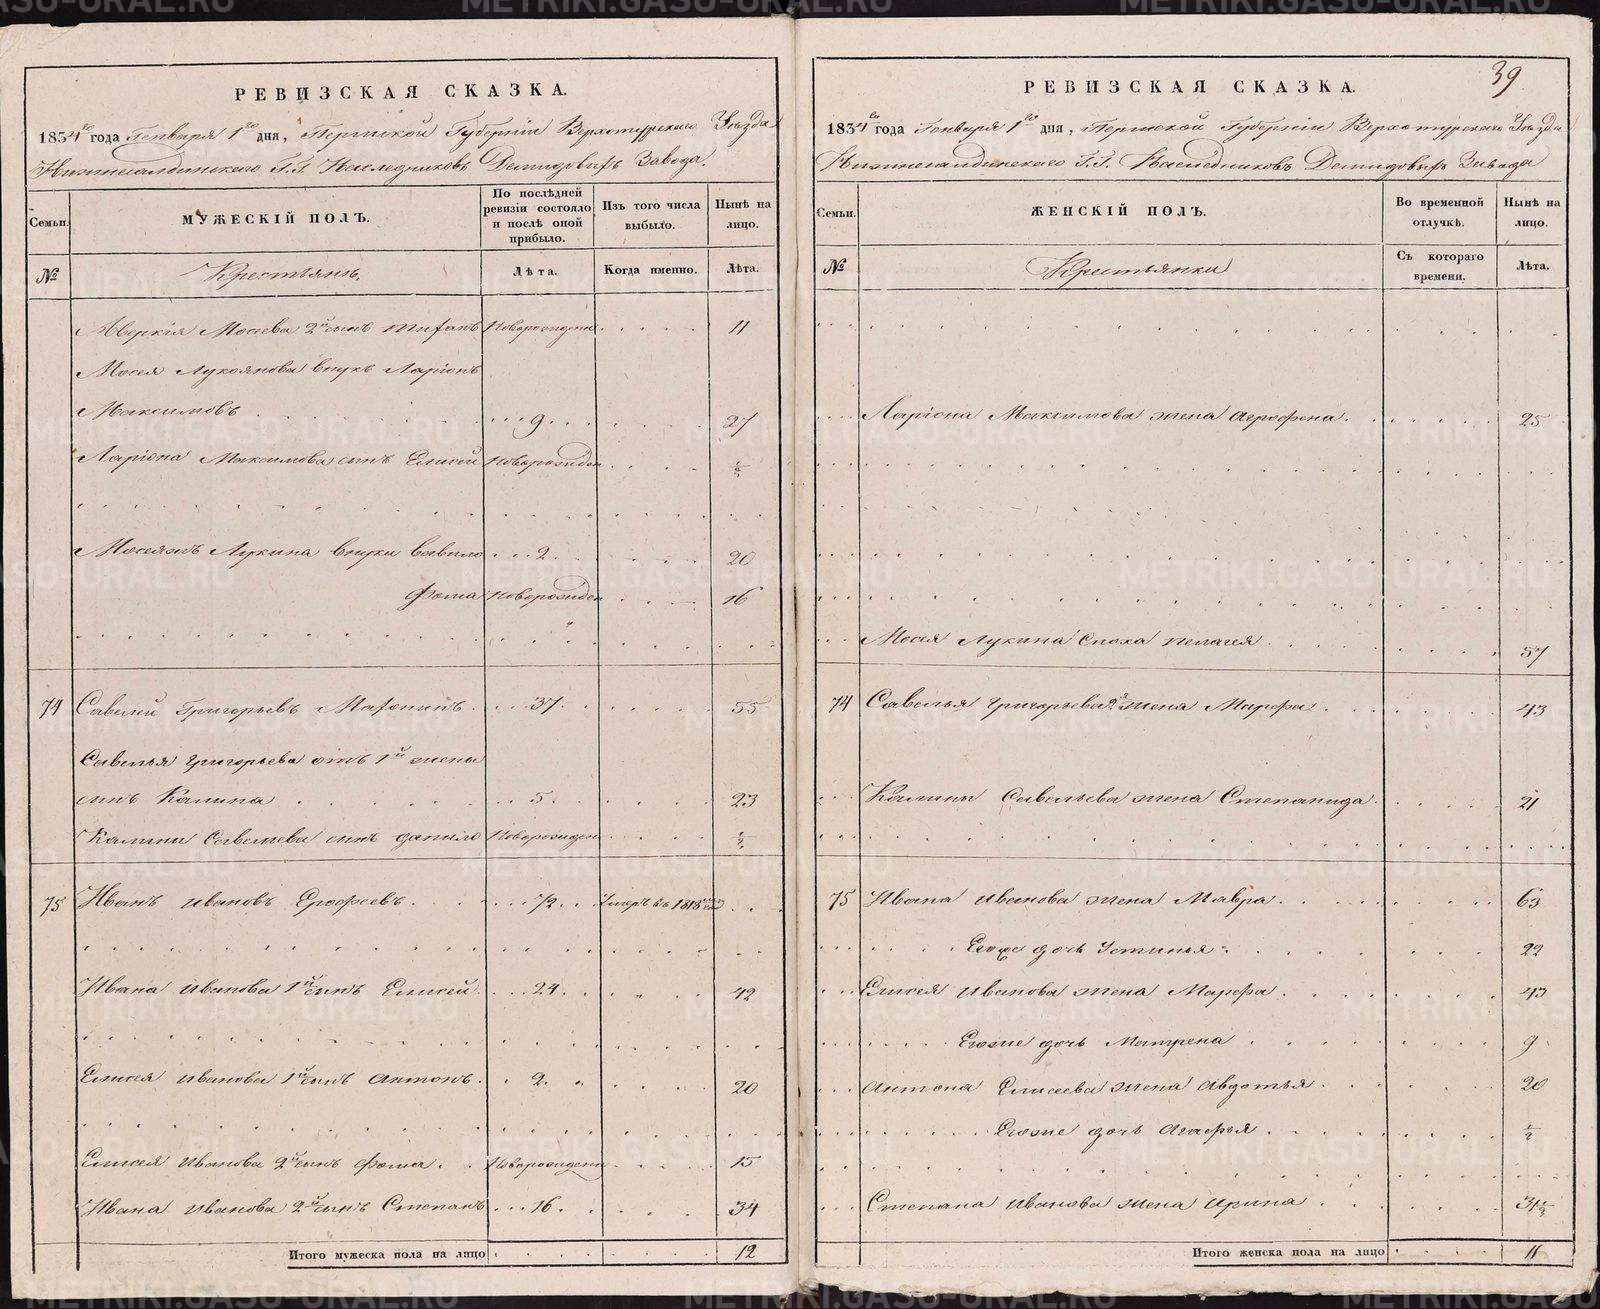 РЕВИЗСКАЯ СКАЗКА.
1834го года Генваря 1го дня, Пермской Губерніи Верхотурскаго Уѣзда
Нижнесалдинскаго Г.Г. Наслѣдниковъ Демидовыхъ Завода.
Семьи.
МУЖЕСКІЙ ПОЛЪ.
По послѣдней ревизіи состояло и послѣ оной прибыло.
Изъ того числа выбыло.
Нынѣ на лицо.
№
Крестьянъ.
Лѣта.
Когда именно.
Лѣта.
Аверкія Мосѣева 2й сынъ Тифанъ Новорожденъ 11
Мосея Лукоянова внукъ Ларіонъ
Максимовъ 9 27
Ларіона Максимова сынъ Елисей Новорожден ½
Лукина внуки Вавило 2 20
Фома Новорожден 16
74 Савелий Григорьевъ 37 55
Савелья Григорьева отъ 1й жены
сынъ Калина 5 23
Калины Савельева сынъ Данило Новорожден ½
75 Иванъ Ивановъ Ерофѣевъ 72 Умеръ въ 1818
Ивана Иванова 1й сынъ Елисей 24 42
Елисея Иванова 1й сынъ Антонъ 2 20
Елисея Иванова 2й сынъ Фома Новорожденъ 15
Ивана Иванова 2й сынъ Степанъ 16 34
Итого мужеска пола на лицо 12
39
РЕВИЗСКАЯ СКАЗКА.
1834го года Генваря 1го дня, Пермской Губерніи Верхотурскаго Уѣзда
Нижнесалдинскаго Г.Г. Наслѣдниковъ Демидовыхъ Завода
Семьи.
ЖЕНСКІЙ ПОЛЪ.
Во временной отлучкѣ.
Нынѣ на лицо.
№
Крестьянки
Съ котораго времени.
Лѣта.
Ларіона Максимова жена Агрофена 25
Мосея Лукина сноха Пелагея 57
74 Савелья Григорьева 2я жена Марфа 43
Калины Савельева жена Степанида 21
75 Ивана Иванова жена Мавра 63
Егоже дочь Устинья 22
Елисея Иванова жена Марфа 43
Егоже дочь Матрена 9
Антона Елисеева жена Авдотья 20
Егоже дочь Агафья ½
Степана Иванова жена Ирина 31½
Итого женска пола на лицо 11
METRIKI.GASO-URAL.RU